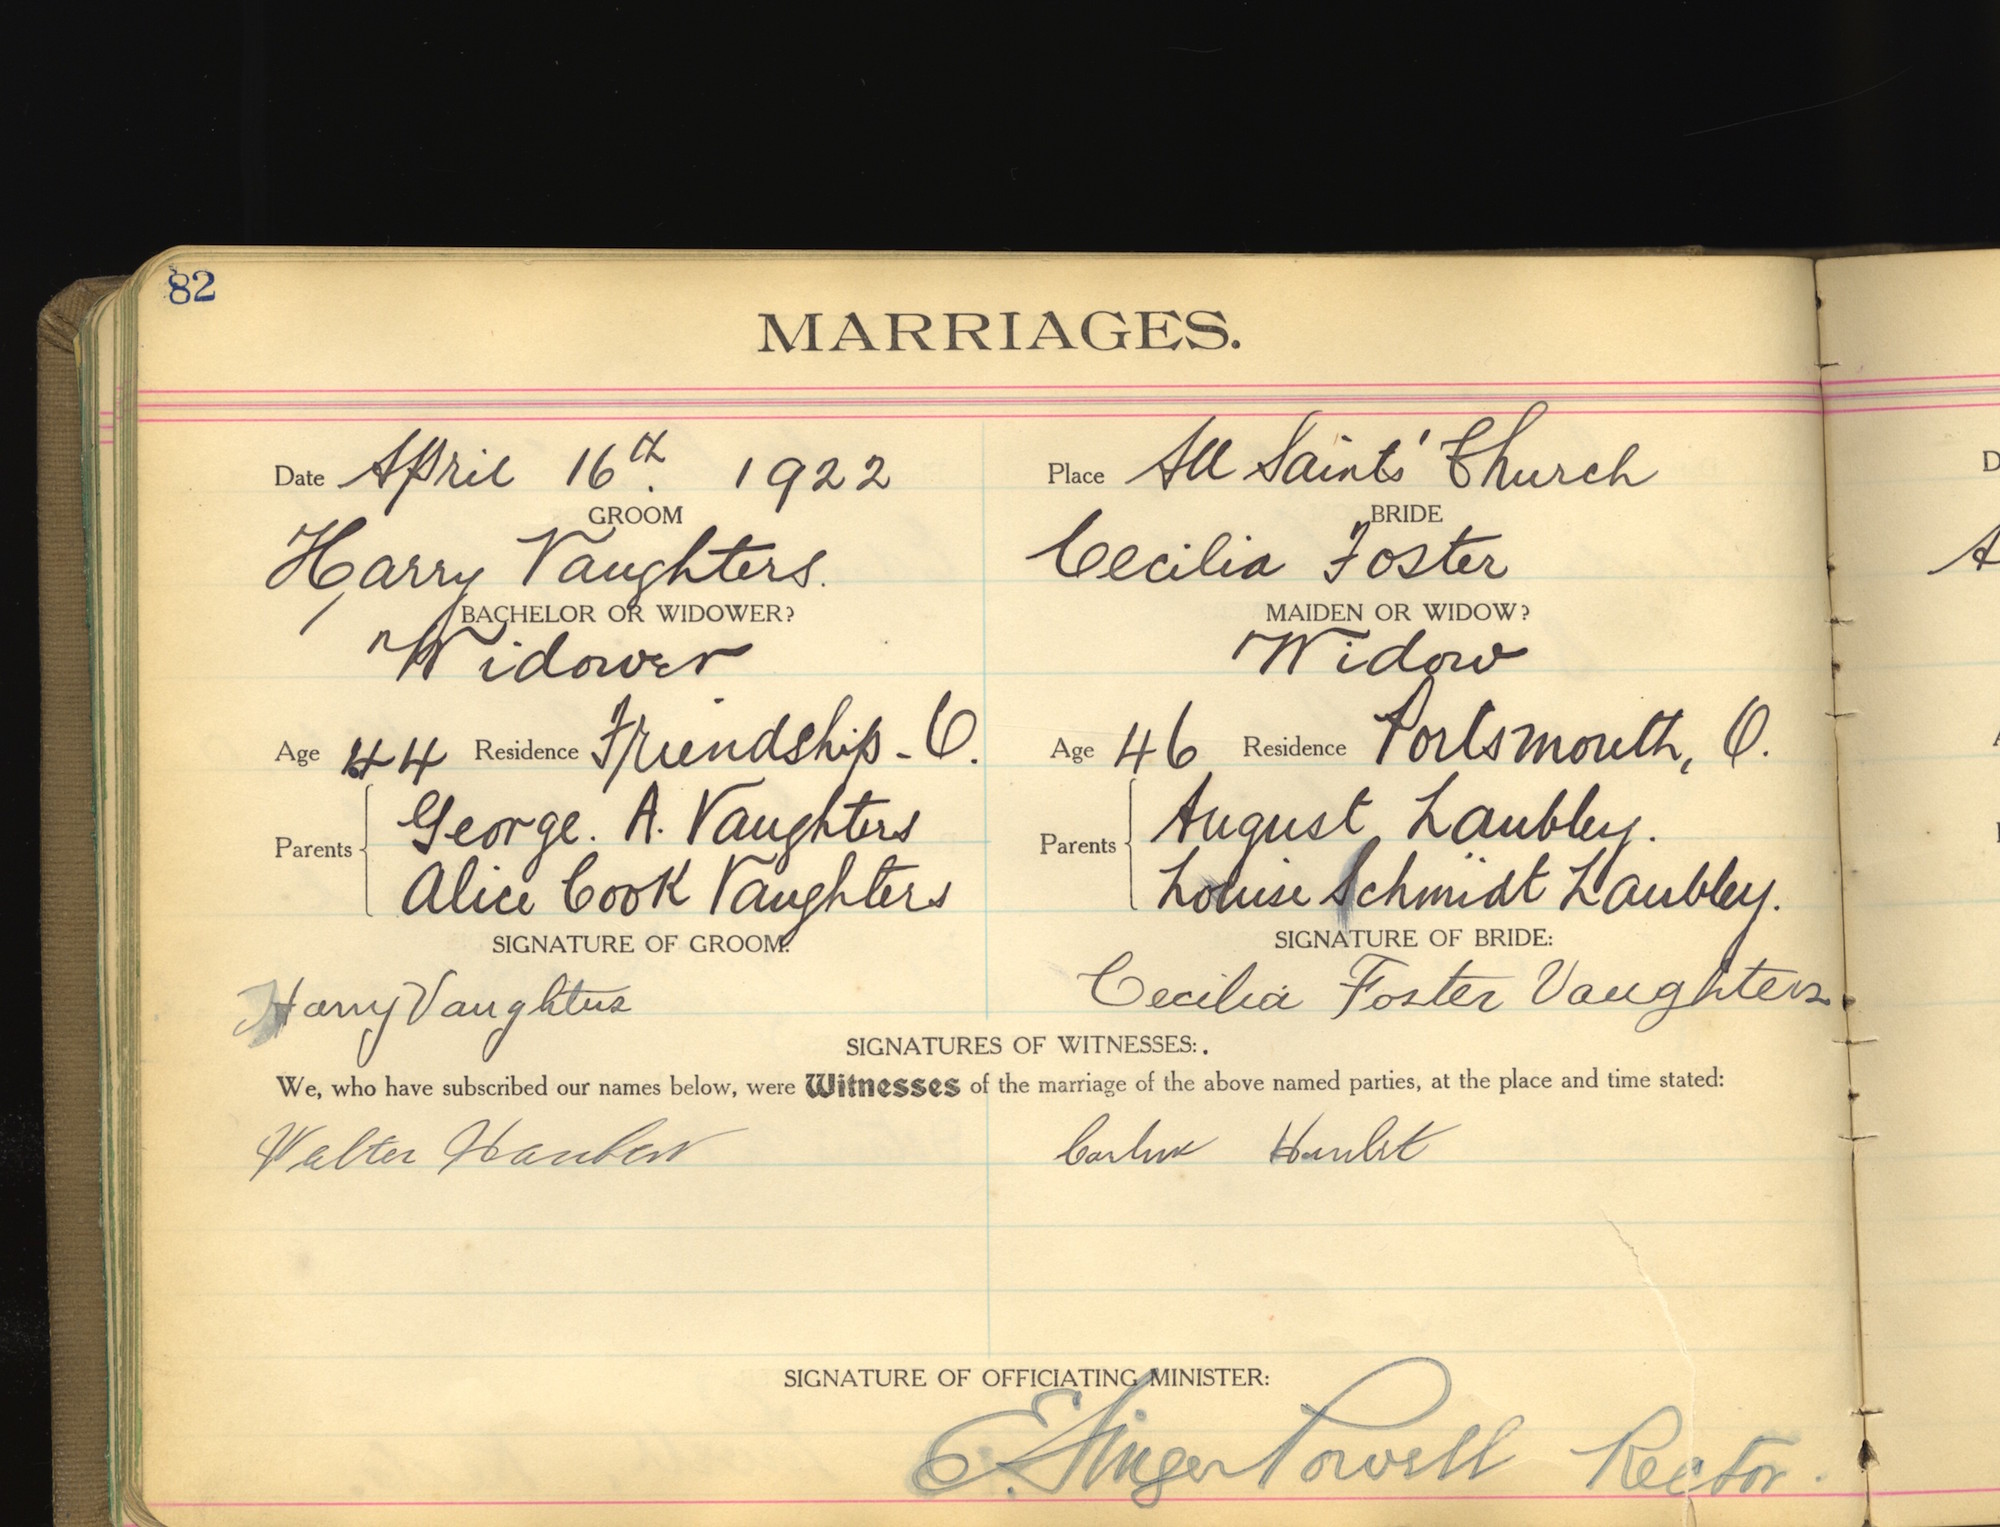 82
MARRIAGES.
Date April 16th. 1922
Place All Saints' Church
GROOM
BRIDE
Harry Vaughters.
Cecilia Foster
BACHELOR OR WIDOWER?
MAIDEN OR WIDOW?
Widower
Widow
Age 44 Residence Friendship - O.
Age 46 Residence Portsmouth, O.
Parents
George. A. Vaughters
Alice Cook Vaughters
Parents
August Laubley.
Louise Schmidt Laubley.
SIGNATURE OF GROOM:
SIGNATURE OF BRIDE:
Harry Vaughters
Cecilia Foster Vaughters
SIGNATURES OF WITNESSES:.
We, who have subscribed our names below, were Witnesses of the marriage of the above named parties, at the place and time stated:
Walter
SIGNATURE OF OFFICIATING MINISTER:
E. Ainger Powell Rector.